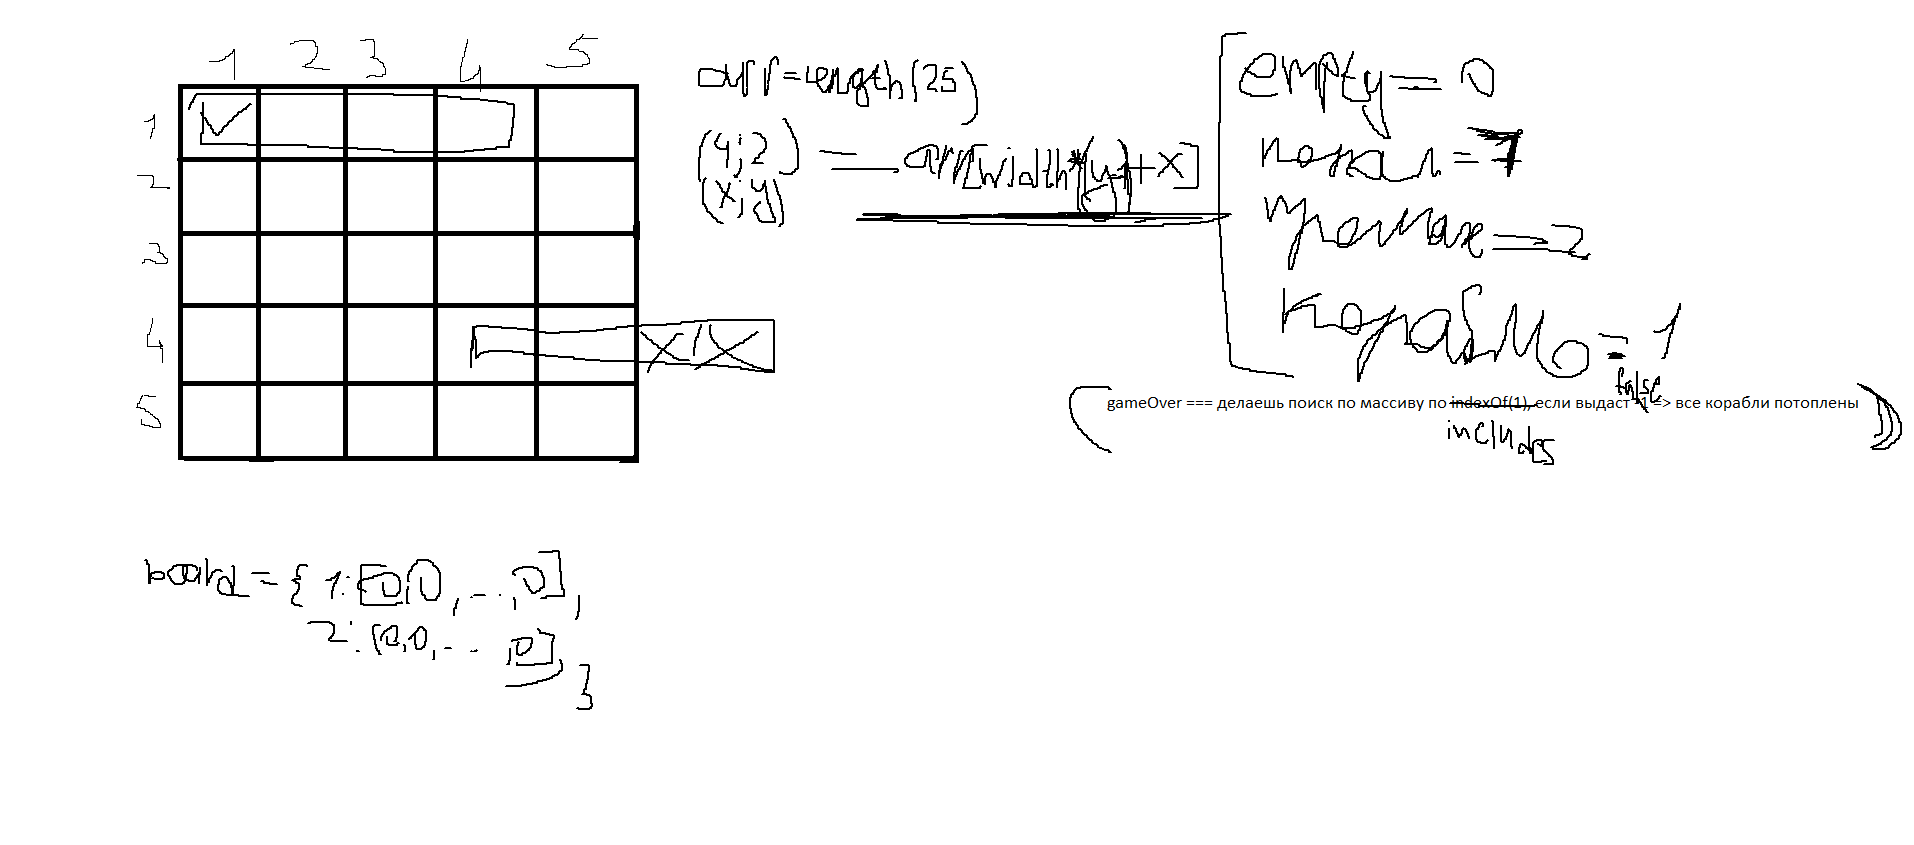 1 2 3 4 5
1
2
3
4
5
arr=length(25)
(4;2) = arr[width*(y-1)+x]
(x;y)
empty = 0
попал = 7
промах = 2
корабль = 1
gameOver === делаешь поиск по массиву по indexOf(1), если выдаст -1 => все корабли потоплены
false
includes
board = { 1: [0,0, ..., 0],
2: [0,0, ... ,0],
}